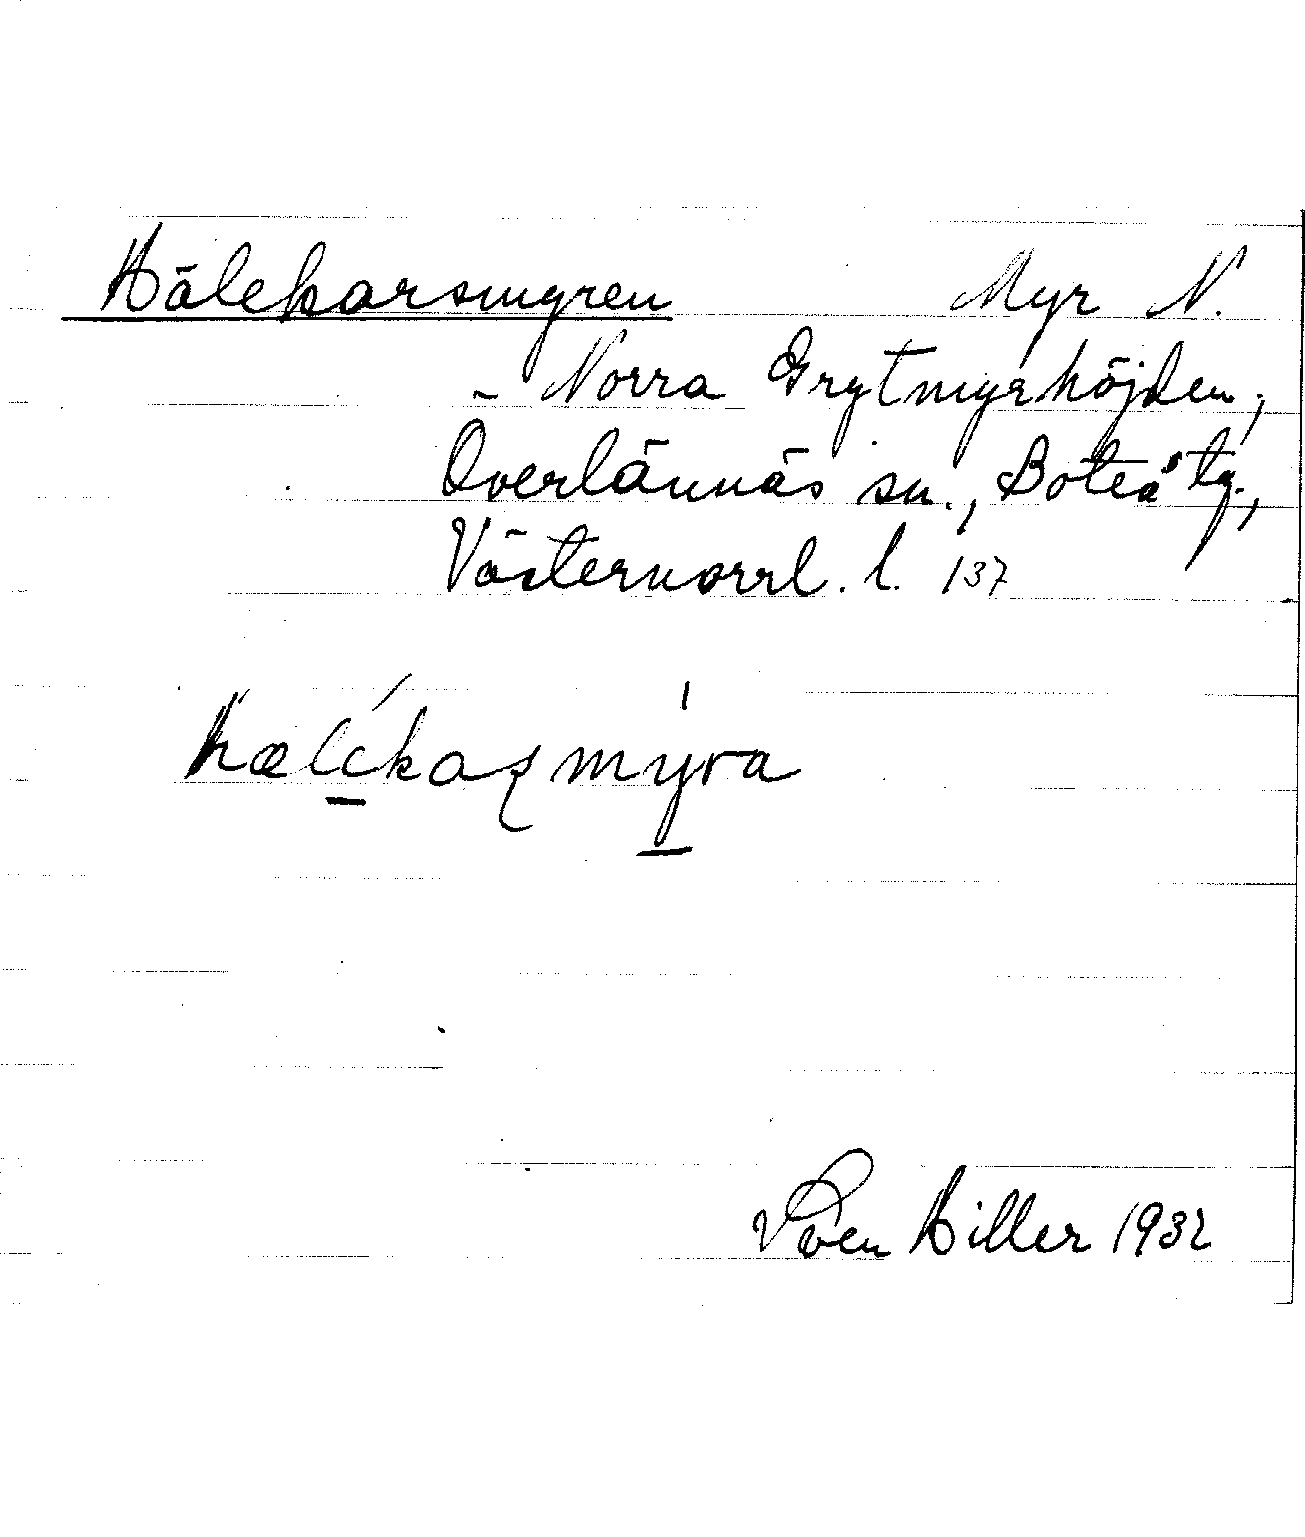 Hälekarsmyren Myr N.
- Norra Grytmyrhöjden,
Överlännäs sn., Boteå tg.,
Västernorrl. l. 137
Sven Hiller 1932